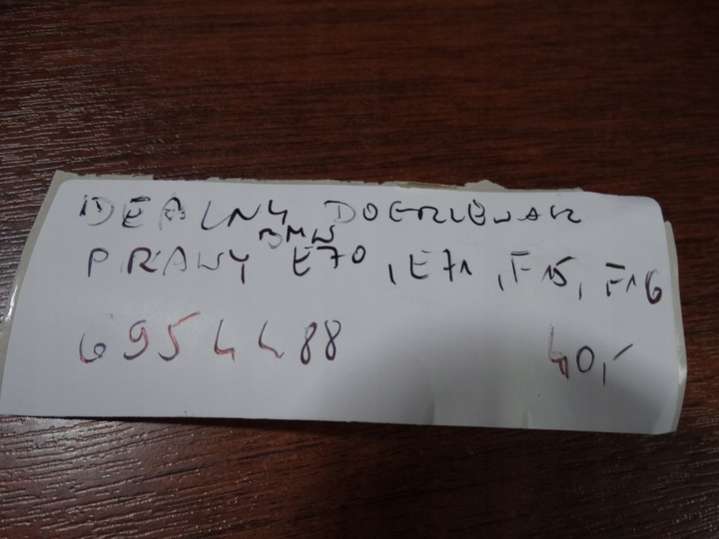 IDEALNY DOGRZEWACZ
PRAWY BMW E70, E71, F15, F16
6954488 40,-